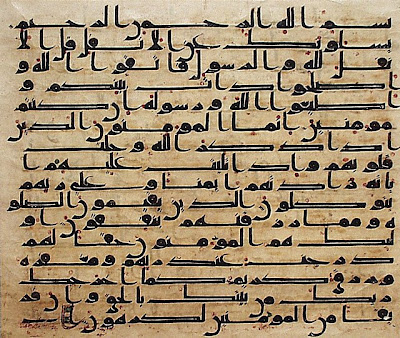 بسم الله الرحمن الرحيم
يسلونك عن الانفال قل الا
نفال لله والرسول فاتقوا الله و
اصلحوا ذات بينكم و
اطيعوا الله ورسوله ان كنتم
مومنين انما المومنون الذين
اذا ذكر الله وجلت
قلوبهم واذا تليت عليهم ا
يته زادتهم ايمنا وعلى ربهم
يتوكلون الذين يقيمون الصلو
ة ومما رزقنهم ينفقون او
ليك هم المومنون حقا لهم
درجت عند ربهم ومغفر
ة ورزق كريم كما اخرجك
ربك من بيتك بالحق وان فر
يقا من المومنين لكرهون